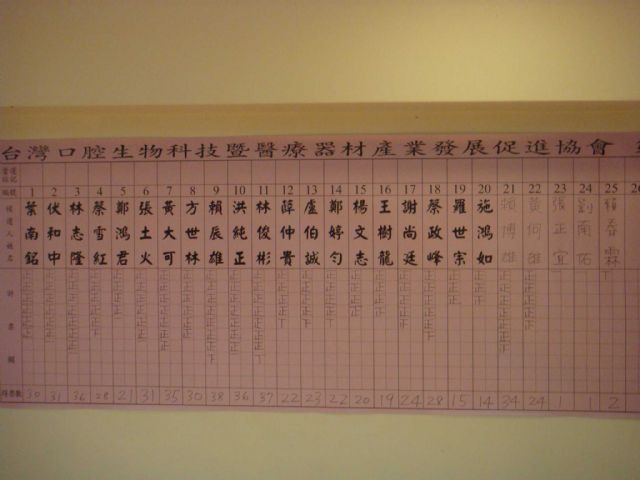 台灣口腔生物科技暨醫療器材產業發展促進協會
編號 1 2 3 4 5 6 7 8 9 10 11 12 13 14 15 16 17 18 19 20 21 22 23 24 25 26
候選人姓名
葉南銘
伏和中
林志隆
蔡雪紅
鄭鴻君
張土火
黃大可
方世林
賴辰雄
洪純正
林俊彬
薛仲貴
盧伯誠
鄭婷勻
楊文志
王樹龍
謝尚廷
蔡政峰
羅世宗
施鴻如
黃何雄
張正宜
劉南佑
賴春霖
計票欄
得票數 30 31 36 28 21 31 35 30 38 36 37 22 23 22 20 19 24 28 15 14 34 24 1 1 2